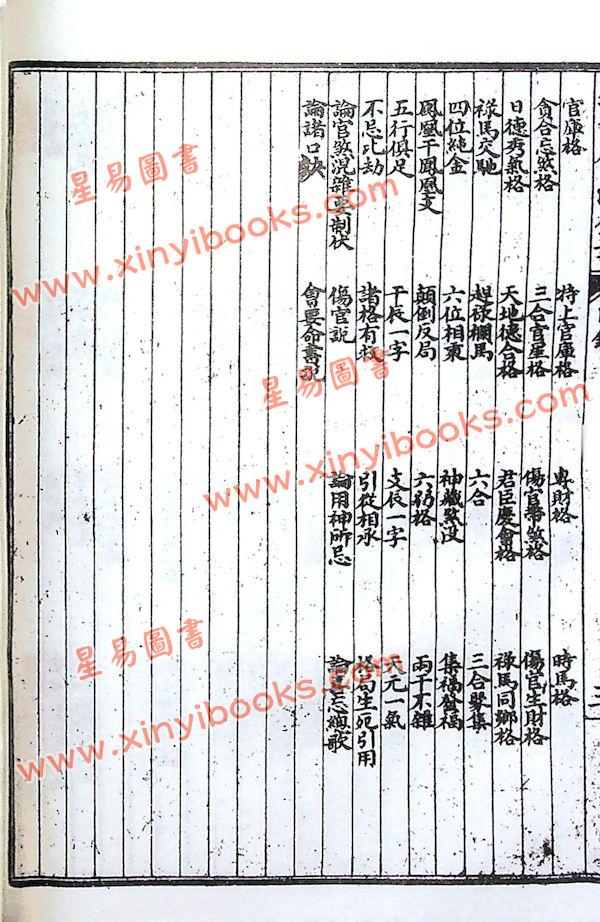 官庫格　特上官庫格　專財格　時馬格
貪合忘煞格　三合官星格　傷官帶煞格　傷官生財格
日德秀氣格　天地德合格　君臣慶會格　祿馬同鄉格
祿馬交馳　趕祿欄馬　六合　三合聚集
四位純金　六位相乘　神藏煞没　集福發福
鳳凰干鳳凰支　顛倒反局　兩干不雜
五行俱足　干辰一字　支辰一字　天元一氣
不忌比劫　諸格有救　引從相承　格局生死引用
論官煞混雜要制伏　傷官說　論用神所忌
論諸口訣　會要命書說
星易圖書
www.xinyibooks.com
星易圖書
www.xinyibooks.com
星易圖書
www.xinyibooks.com